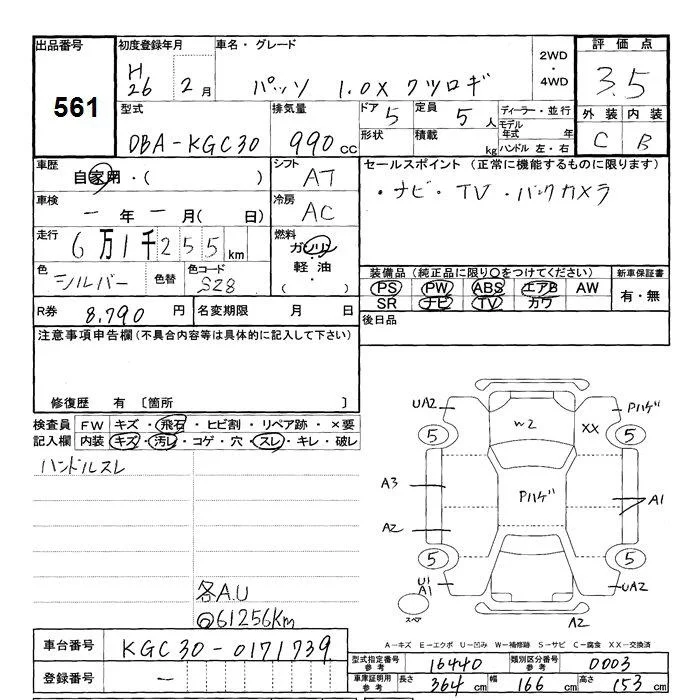 出品番号
561
初度登録年月
H26 2月
車名・グレード
パッソ 1.0X クツロギ
2WD
・
4WD
評価点
3.5
外装 内装
C B
型式
DBA-KGC30
排気量
990cc
ドア 5
定員 5人
形状
積載 kg
ディーラー・並行
モデル年式 年
ハンドル 左・右
車歴
自家用・( )
シフト
AT
車検
一年一月( 日)
冷房
AC
走行
6万1千255km
燃料
ガソリン
軽油
( ・ )
色
シルバー
色替
色コード
S28
セールスポイント(正常に機能するものに限ります)
・ナビ・TV・バックカメラ
装備品(純正品に限り○をつけてください)
PS PW ABS エアB AW
SR ナビ TV カワ
新車保証書
有・無
R券 8,790円
名変期限 月 日
後日品
注意事項申告欄(不具合内容等は具体的に記入して下さい)
修復歴 有〔箇所 〕
検査員記入欄
FW キズ・飛石・ヒビ割・リペア跡・×要
内装 キズ・汚レ・コゲ・穴・スレ・キレ・破レ
ハンドルスレ
各A.U
@61256Km
UA2
Pハゲ
W2
XX
5
5
A3
Pハゲ
A1
A2
5
5
U1
A1
UA2
スペア
A2
A-キズ E-エクボ U-凹み W-補修跡 S-サビ C-腐食 XX-交換済
車台番号
KGC30-0171739
登録番号
—
型式指定番号参考
16440
類別区分番号参考
0003
車庫証明用参考
長さ 364cm
幅 166cm
高さ 153cm